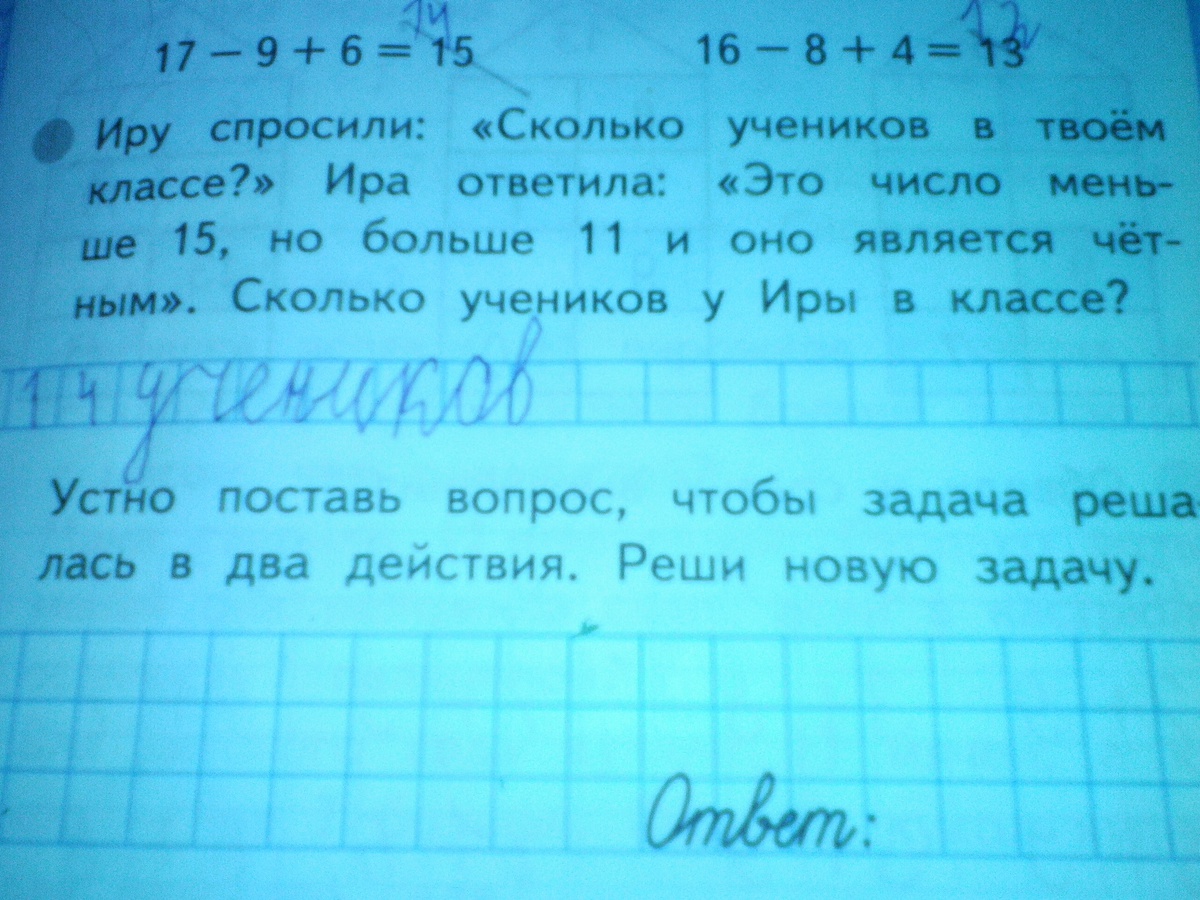 14 12
17 − 9 + 6 = 15 16 − 8 + 4 = 13
Иру спросили: «Сколько учеников в твоём
классе?» Ира ответила: «Это число мень-
ше 15, но больше 11 и оно является чёт-
ным». Сколько учеников у Иры в классе?
14 учеников
Устно поставь вопрос, чтобы задача реша-
лась в два действия. Реши новую задачу.
Ответ: